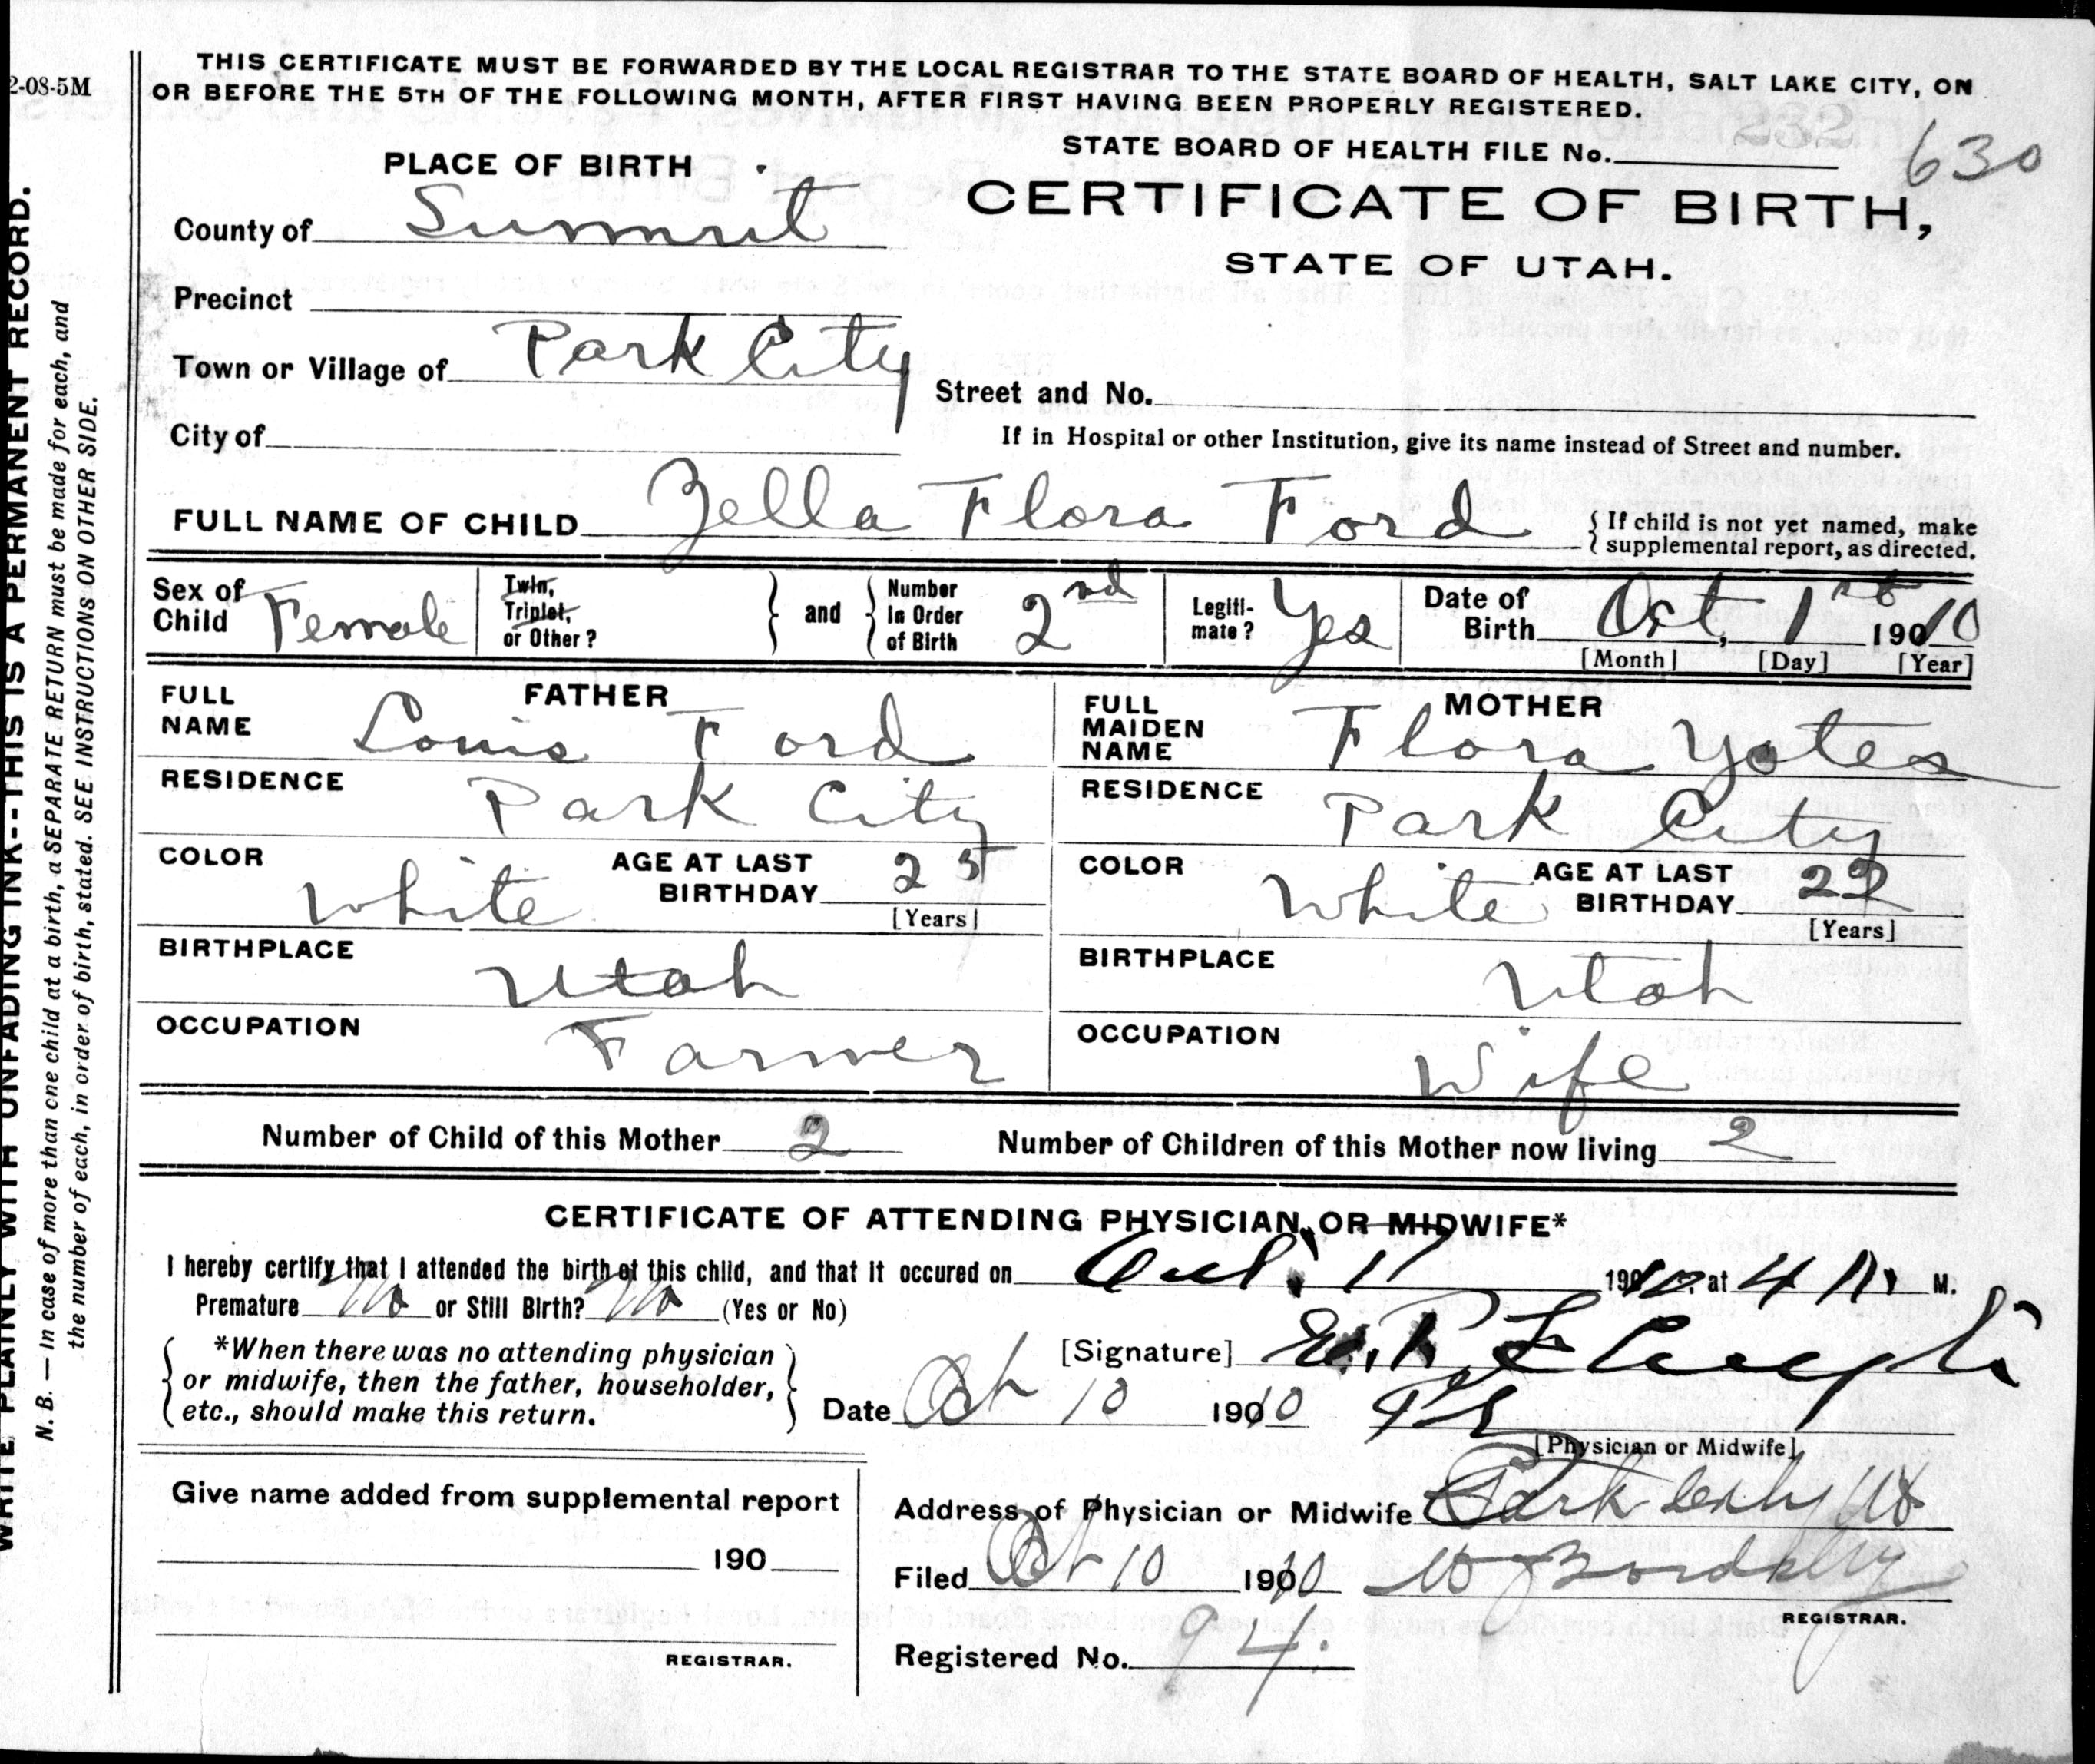 2-08-5M
THIS CERTIFICATE MUST BE FORWARDED BY THE LOCAL REGISTRAR TO THE STATE BOARD OF HEALTH, SALT LAKE CITY, ON
OR BEFORE THE 5TH OF THE FOLLOWING MONTH, AFTER FIRST HAVING BEEN PROPERLY REGISTERED.
232
STATE BOARD OF HEALTH FILE No. 630
PLACE OF BIRTH
CERTIFICATE OF BIRTH,
STATE OF UTAH.
County of Summit
Precinct
Town or Village of Park City
Street and No.
City of
If in Hospital or other Institution, give its name instead of Street and number.
FULL NAME OF CHILD Zella Flora Ford
{ If child is not yet named, make
supplemental report, as directed.
Sex of
Child Female
Twin,
Triplet,
or Other?
} and {
Number
In Order
of Birth 2nd
Legiti-
mate? Yes
Date of
Birth Oct, 1st 1910
[Month] [Day] [Year]
FATHER
FULL
NAME Louis Ford
RESIDENCE Park City
COLOR White
AGE AT LAST
BIRTHDAY 25
[Years]
BIRTHPLACE Utah
OCCUPATION Farmer
MOTHER
FULL
MAIDEN
NAME Flora Yates
RESIDENCE Park City
COLOR White
AGE AT LAST
BIRTHDAY 22
[Years]
BIRTHPLACE Utah
OCCUPATION Wife
Number of Child of this Mother 2 Number of Children of this Mother now living 2
CERTIFICATE OF ATTENDING PHYSICIAN, OR MIDWIFE*
I hereby certify that I attended the birth of this child, and that it occured on Oct. 1 1910, at 4 A. M.
Premature No or Still Birth? No (Yes or No)
*When there was no attending physician
or midwife, then the father, householder,
etc., should make this return.
[Signature] E. P.
Date Oct 10 1910
[Physician or Midwife]
Give name added from supplemental report
190
REGISTRAR.
Address of Physician or Midwife Park City Ut
Filed Oct 10 1910
REGISTRAR.
Registered No. 94.
WRITE PLAINLY WITH UNFADING INK--THIS IS A PERMANENT RECORD.
N. B. — In case of more than one child at a birth, a SEPARATE RETURN must be made for each, and
the number of each, in order of birth, stated. SEE INSTRUCTIONS ON OTHER SIDE.